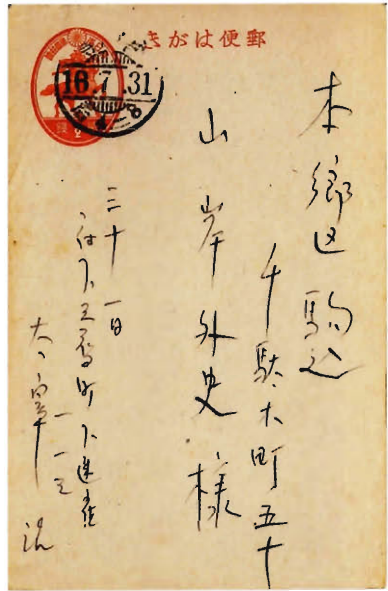 郵便はがき
16.7.31
本郷区駒込
千駄木町五十
山岸外史様
三十一日
府下三鷹町下連雀
一一三
太宰治